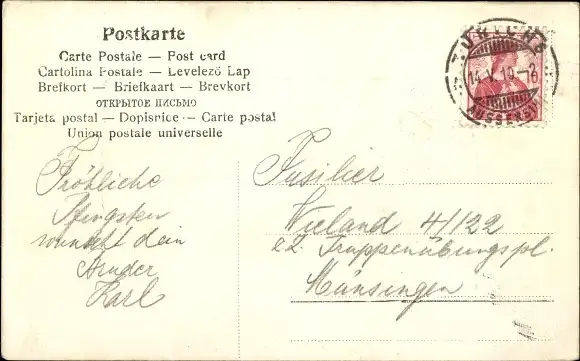 Postkarte
Carte Postale — Post card
Cartolina Postale — Levelező Lap
Brefkort — Briefkaart — Brevkort
ОТКРЫТОЕ ПИСЬМО
Tarjeta postal — Dopisnice — Carte postal
Union postale universelle
ZÜRICH
14.V.10
AUSSERSIHL
Fröhliche
Pfingsten
wünscht dein
Bruder
Karl
Fusilier
Wieland 4/122
z.Z. Truppenübungspl.
Münsingen